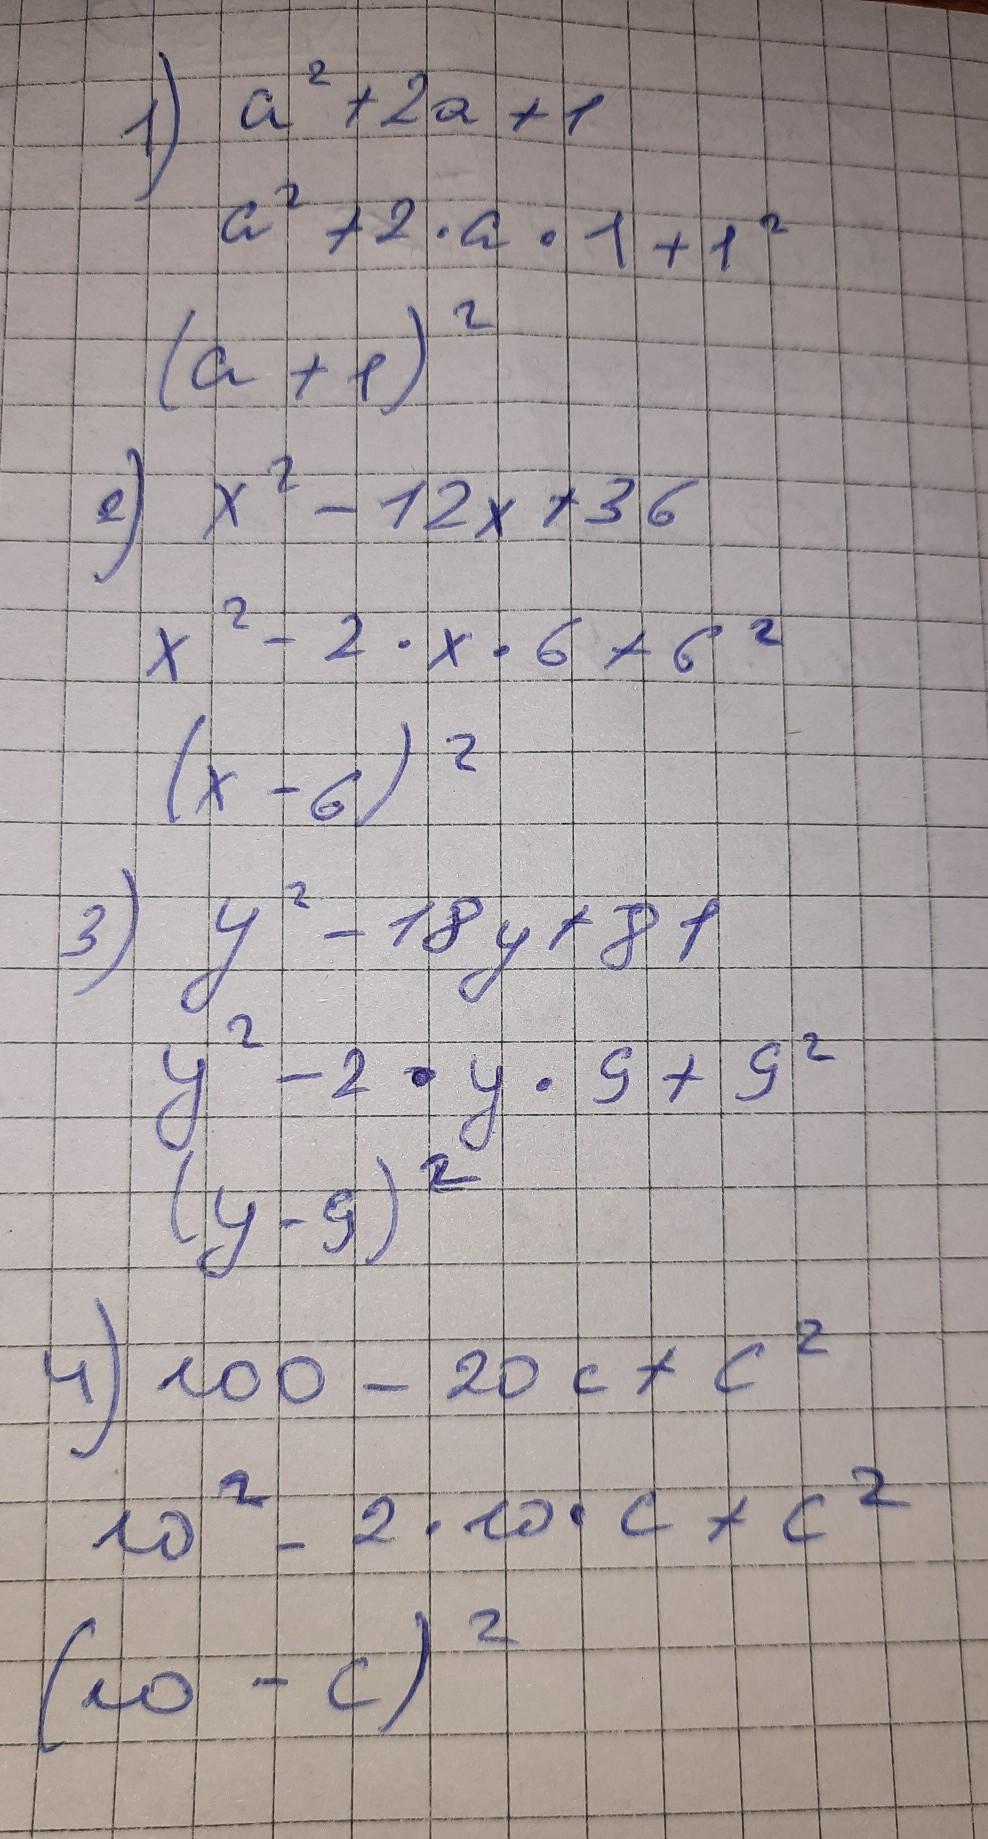 1) a² + 2a + 1
a² + 2 · a · 1 + 1²
(a + 1)²
2) x² - 12x + 36
x² - 2 · x · 6 + 6²
(x - 6)²
3) y² - 18y + 81
y² - 2 · y · 9 + 9²
(y - 9)²
4) 100 - 20c + c²
10² - 2 · 10 · c + c²
(10 - c)²